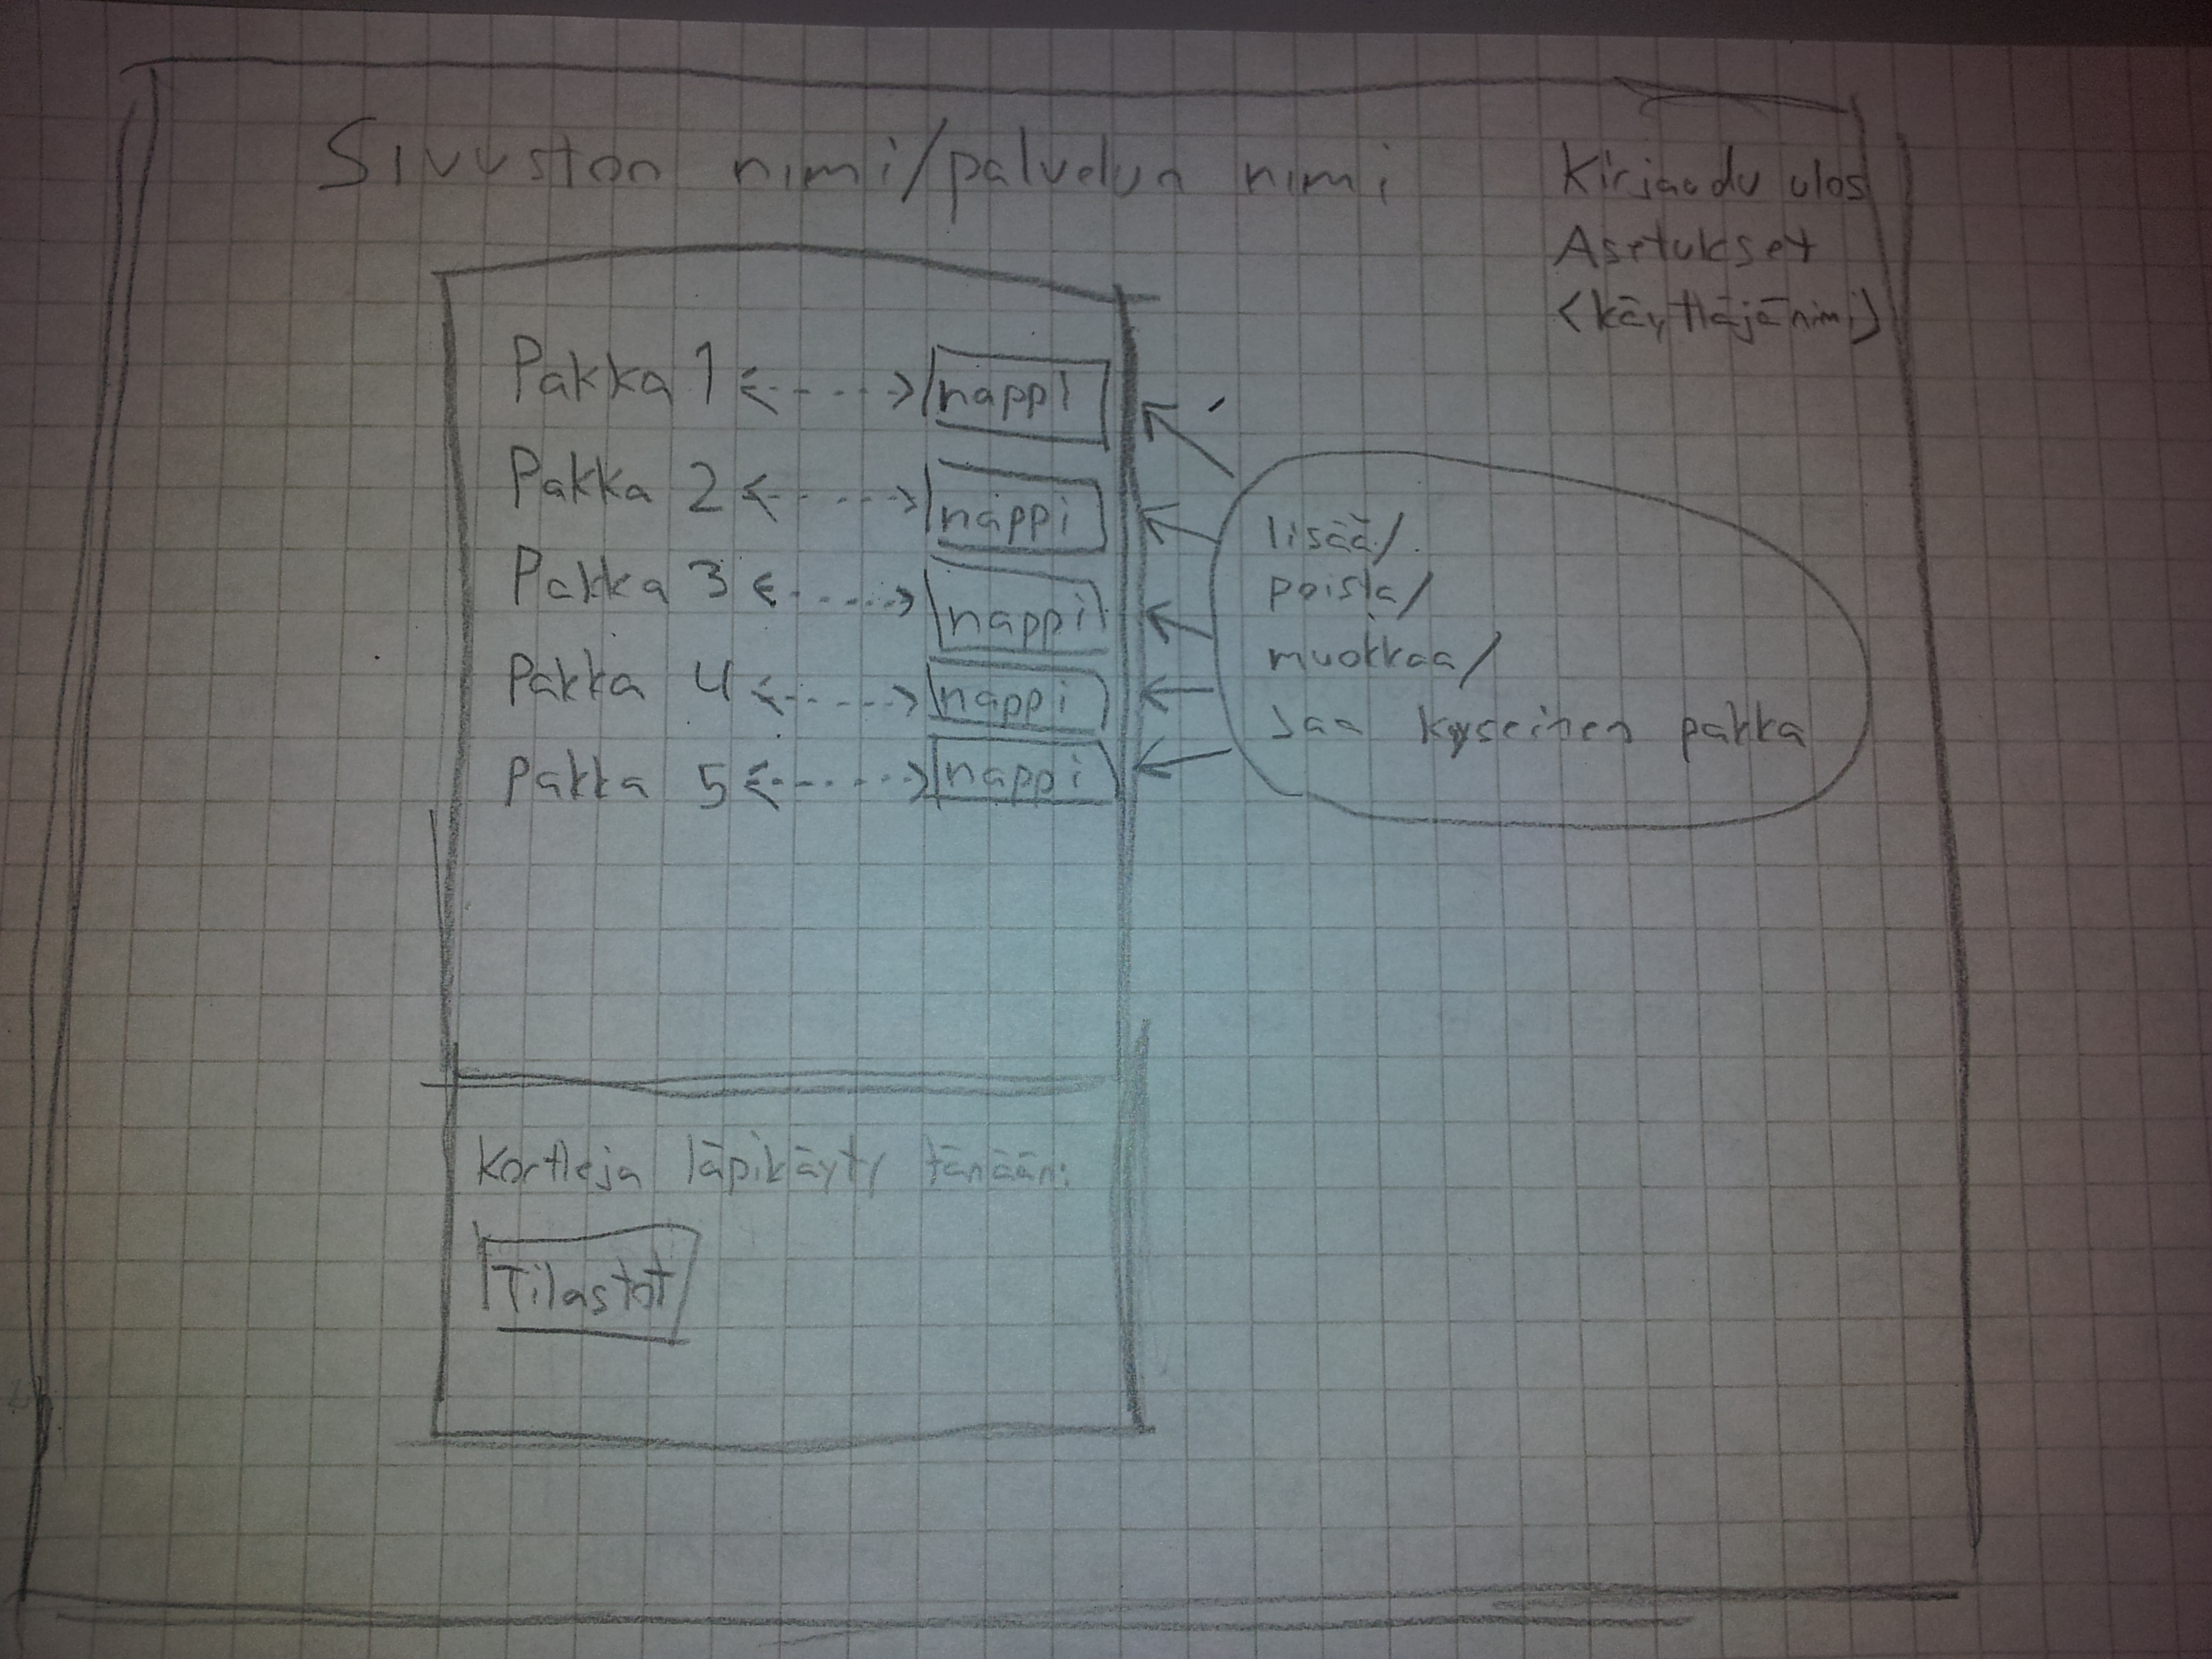 Sivuston nimi/palvelun nimi
Kirjaudu ulos
Asetukset
<käyttäjänimi>
Pakka 1 <----> nappi
Pakka 2 <----> nappi
Pakka 3 <----> nappi
Pakka 4 <----> nappi
Pakka 5 <----> nappi
lisää/
poista/
muokkaa/
jaa kyseinen pakka
Kortteja läpikäyty tänään:
Tilastot